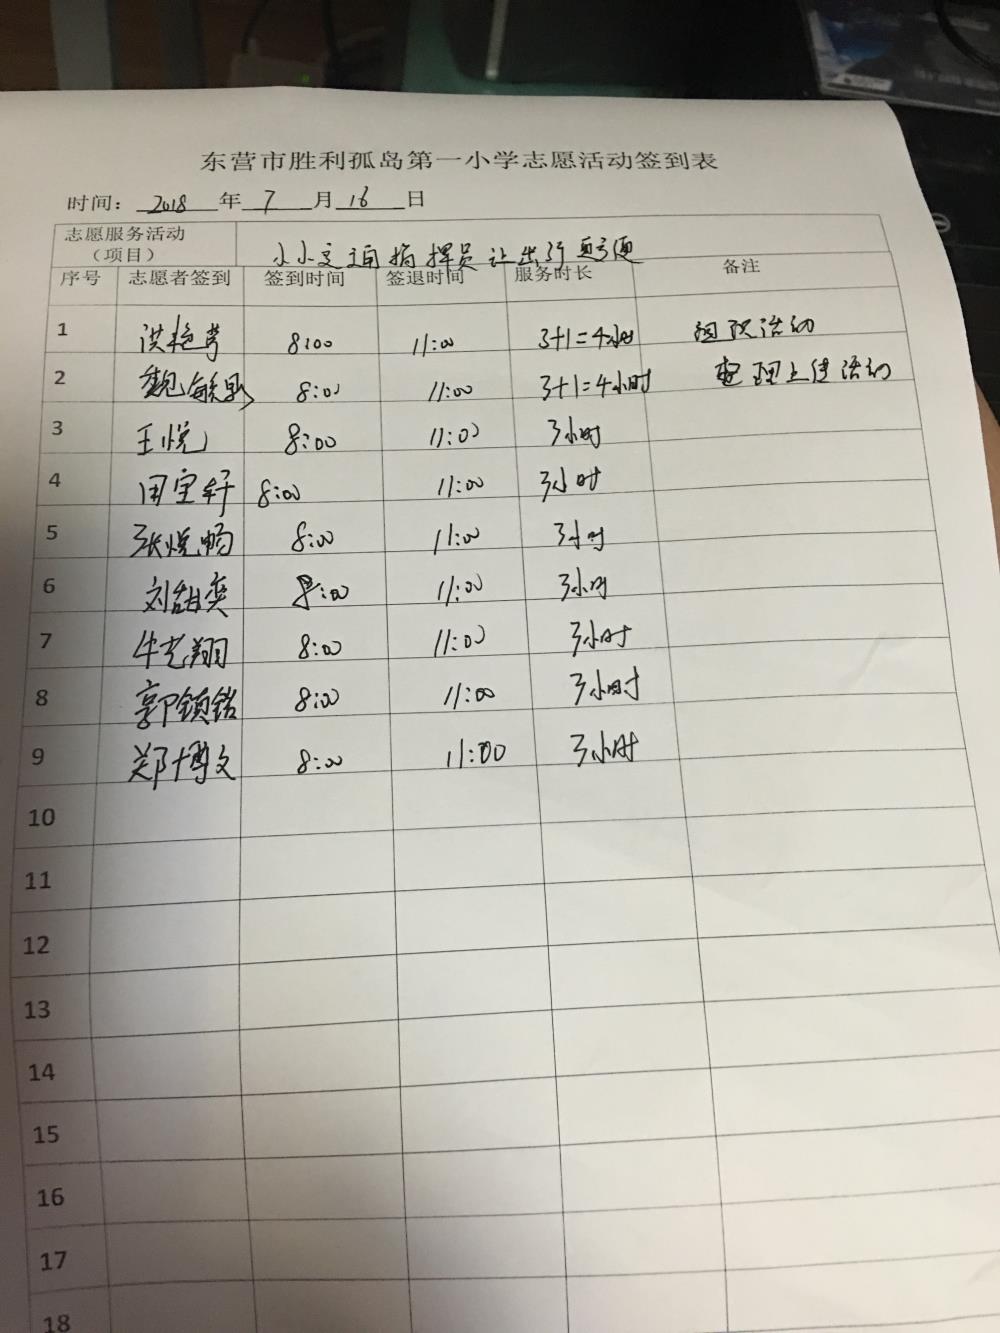 东营市胜利孤岛第一小学志愿活动签到表
时间： 2018 年 7 月 16 日
志愿服务活动（项目） 小小交通指挥员 让出行更方便
序号 志愿者签到 签到时间 签退时间 服务时长 备注
1 洪艳 8:00 11:00 3+1=4小时 组织活动
2 魏敏 8:00 11:00 3+1=4小时 整理上传活动
3 王悦 8:00 11:00 3小时
4 周宝轩 8:00 11:00 3小时
5 张悦畅 8:00 11:00 3小时
6 刘甜奕 8:00 11:00 3小时
7 牛艺翔 8:00 11:00 3小时
8 郭镇铭 8:00 11:00 3小时
9 郑博文 8:00 11:00 3小时
10
11
12
13
14
15
16
17
18